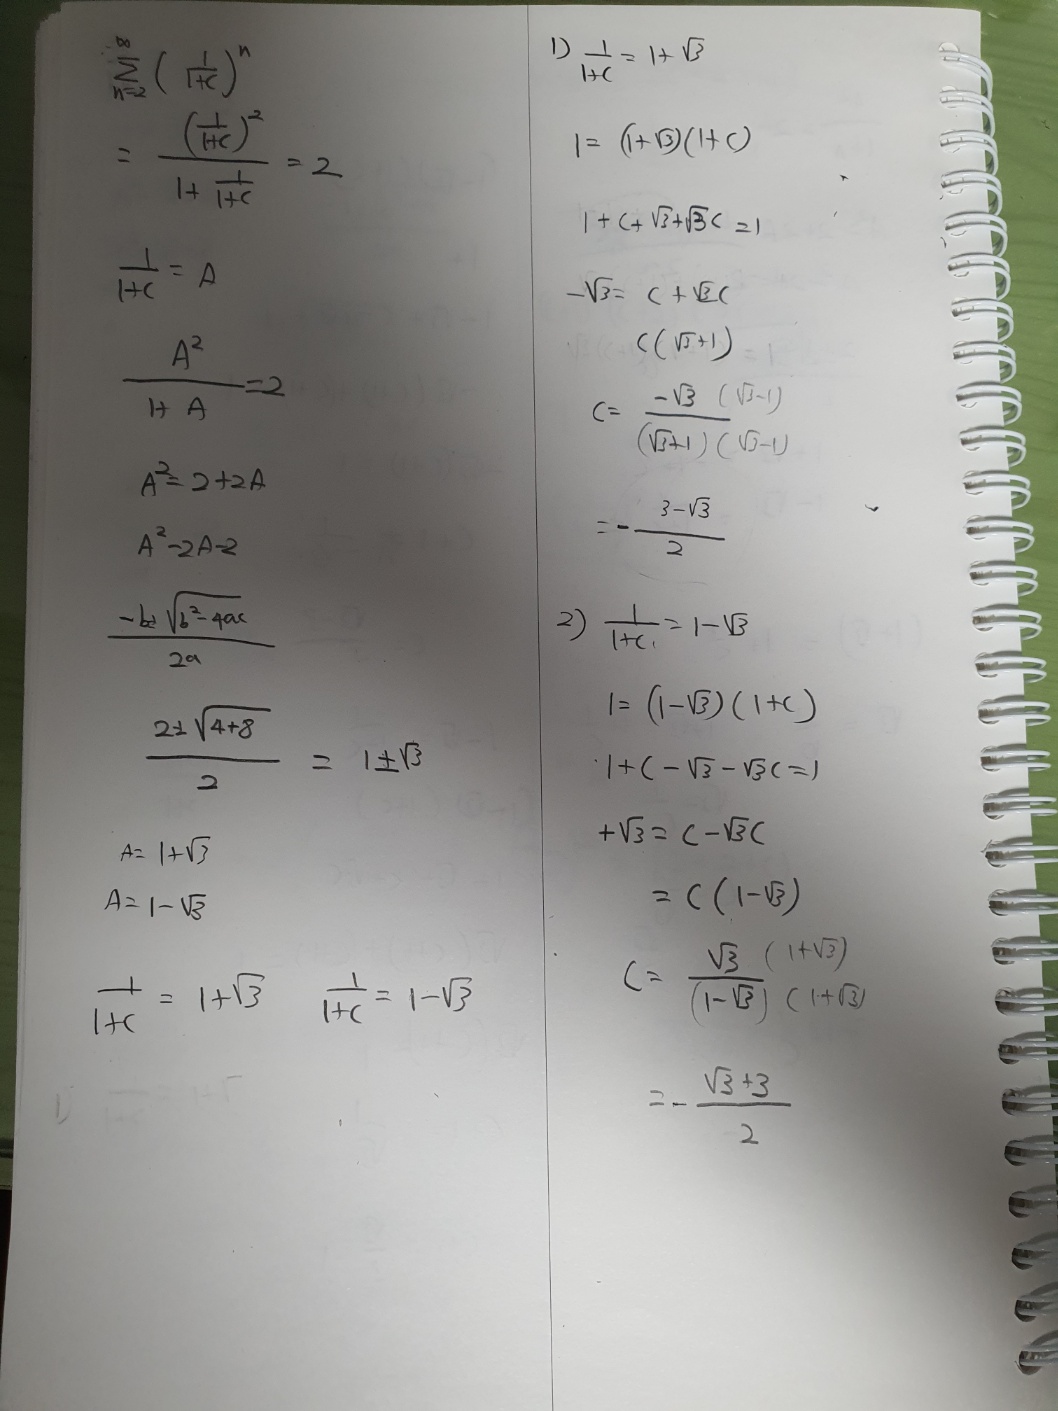 ∞
Σ ( 1/(1+c) )^n
n=2
= (1/(1+c))^2 / (1 + 1/(1+c)) = 2
1/(1+c) = A
A^2 / (1+ A) = 2
A^2 = 2+2A
A^2-2A-2
(-b± √(b^2-4ac)) / 2a
(2± √(4+8)) / 2 = 1±√3
A= 1+√3
A= 1-√3
1/(1+c) = 1+√3 1/(1+c) = 1-√3
1) 1/(1+c) = 1+√3
1= (1+√3)(1+c)
1+c+√3+√3c =1
-√3= c+√3c
c(√3+1)
c= -√3 (√3-1) / (√3+1)(√3-1)
= - (3-√3)/2
2) 1/(1+c) = 1-√3
1= (1-√3)(1+c)
1+c-√3-√3c=1
+√3= c-√3c
= c(1-√3)
c= √3 (1+√3) / (1-√3)(1+√3)
= - (√3+3)/2